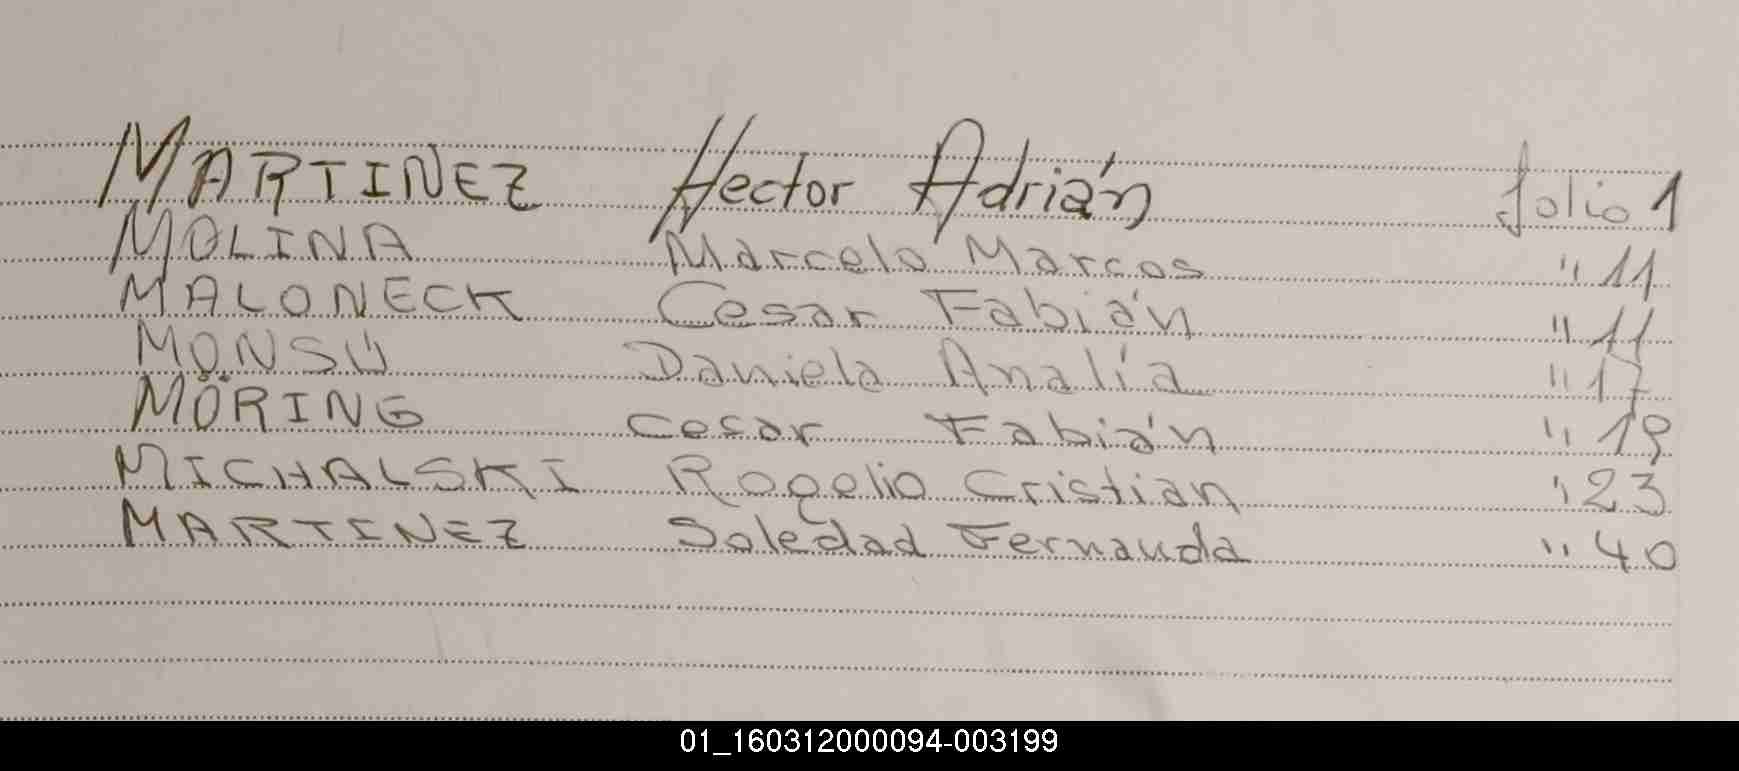 MARTINEZ Hector Adrián folio 1
MOLINA Marcelo Marcos " 11
MALONECK Cesar Fabián " 11
MONSÚ Daniela Analía " 17
MÖRING Cesar Fabián " 19
MICHALSKI Rogelio Cristian " 23
MARTINEZ Soledad Fernanda " 40
01_160312000094-003199